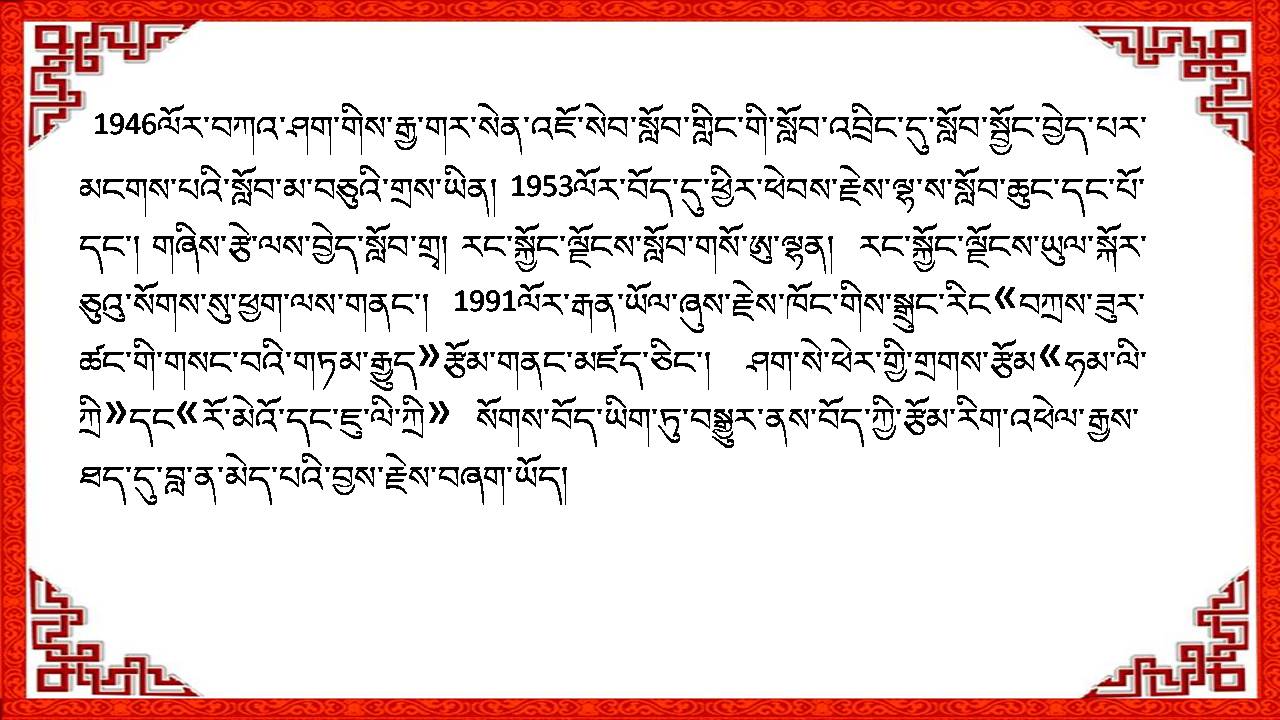 1946ལོར་བཀའ་ཤག་གིས་རྒྱ་གར་སེན་འཇོ་སེབ་སློབ་གླིང་གི་སློབ་འབྲིང་དུ་སློབ་སྦྱོང་བྱེད་པར་
མངགས་པའི་སློབ་མ་བཅུའི་གྲས་ཡིན། 1953ལོར་བོད་དུ་ཕྱིར་ཕེབས་རྗེས་ལྷ་ས་སློབ་ཆུང་དང་པོ་
དང་། གཞིས་རྩེ་ལས་བྱེད་སློབ་གྲྭ། རང་སྐྱོང་ལྗོངས་སློབ་གསོ་ཨུ་ལྷན། རང་སྐྱོང་ལྗོངས་ཡུལ་སྐོར་
ཅུའུ་སོགས་སུ་ཕྱག་ལས་གནང་། 1991ལོར་རྒན་ཡོལ་ཞུས་རྗེས་ཁོང་གིས་སྒྲུང་རིང《བཀྲས་ཟུར་
ཚང་གི་གསང་བའི་གཏམ་རྒྱུད》རྩོམ་གནང་མཛད་ཅིང་། ཤག་སེ་ཕེར་གྱི་གྲགས་རྩོམ《ཧམ་ལི་
ཀྲི》དང《རོ་མེའོ་དང་ཇུ་ལི་ཀྲི》 སོགས་བོད་ཡིག་ཏུ་བསྒྱུར་ནས་བོད་ཀྱི་རྩོམ་རིག་འཕེལ་རྒྱས་
ཐད་དུ་བླ་ན་མེད་པའི་བྱས་རྗེས་བཞག་ཡོད།